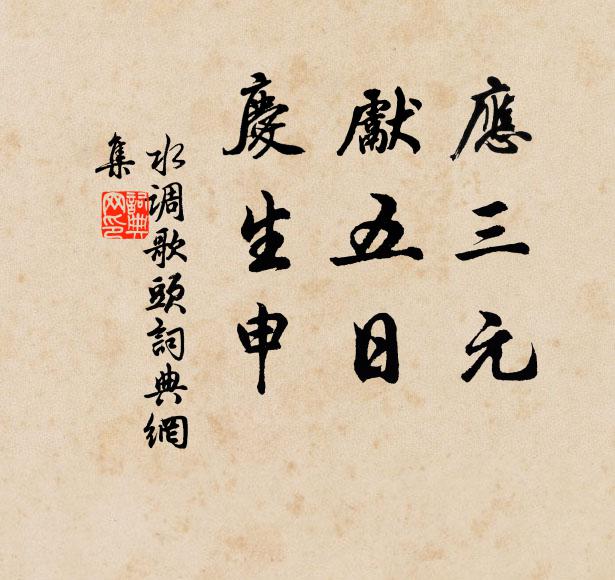 應三元
獻五日
慶生申
水調歌頭詞典網
集
詞典
网印